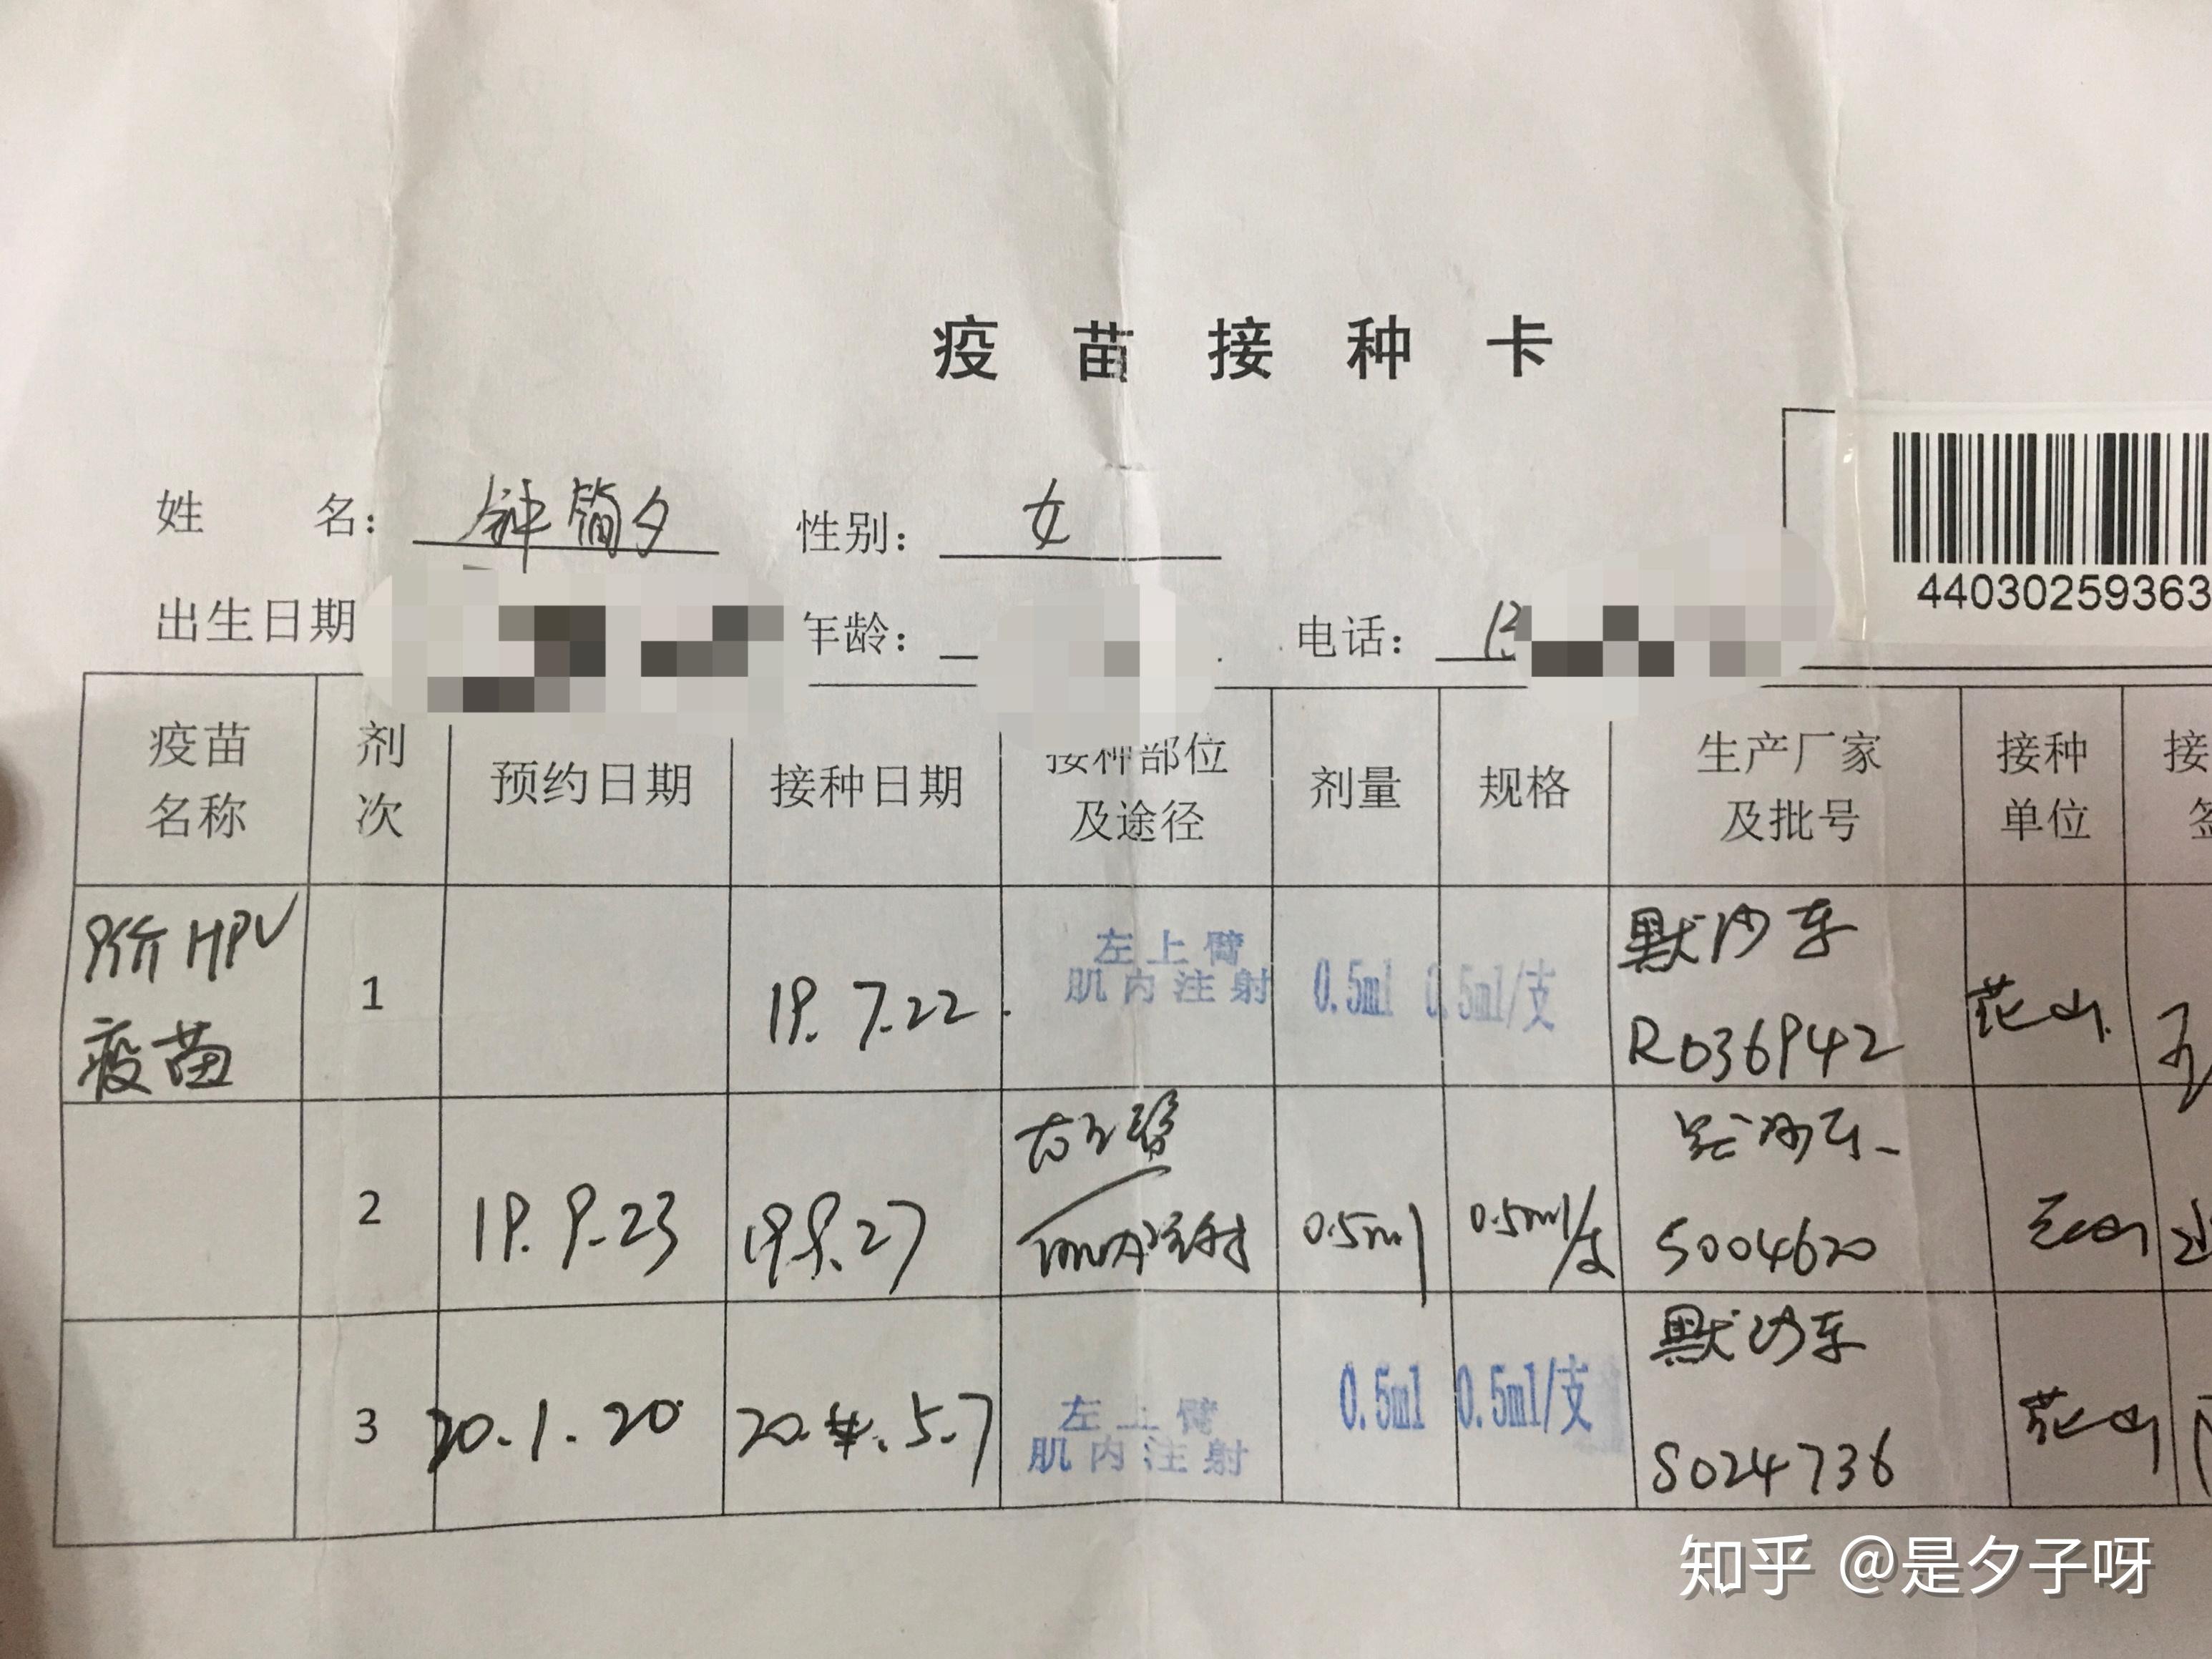 疫苗接种卡
姓名：钟简夕 性别：女
44030259363
出生日期 年龄： 电话：
疫苗名称 剂次 预约日期 接种日期 接种部位及途径 剂量 规格 生产厂家及批号 接种单位
9价HPV疫苗 1 19.7.22. 左上臂肌内注射 0.5ml 0.5ml/支 默沙东 R036942 花山
2 19.9.23 19.9.27 注射 0.5ml 0.5ml/支 默沙东 S004620 花山
3 20.1.20 20. .5.7 左上臂肌内注射 0.5ml 0.5ml/支 默沙东 S024736 花山
知乎 @是夕子呀